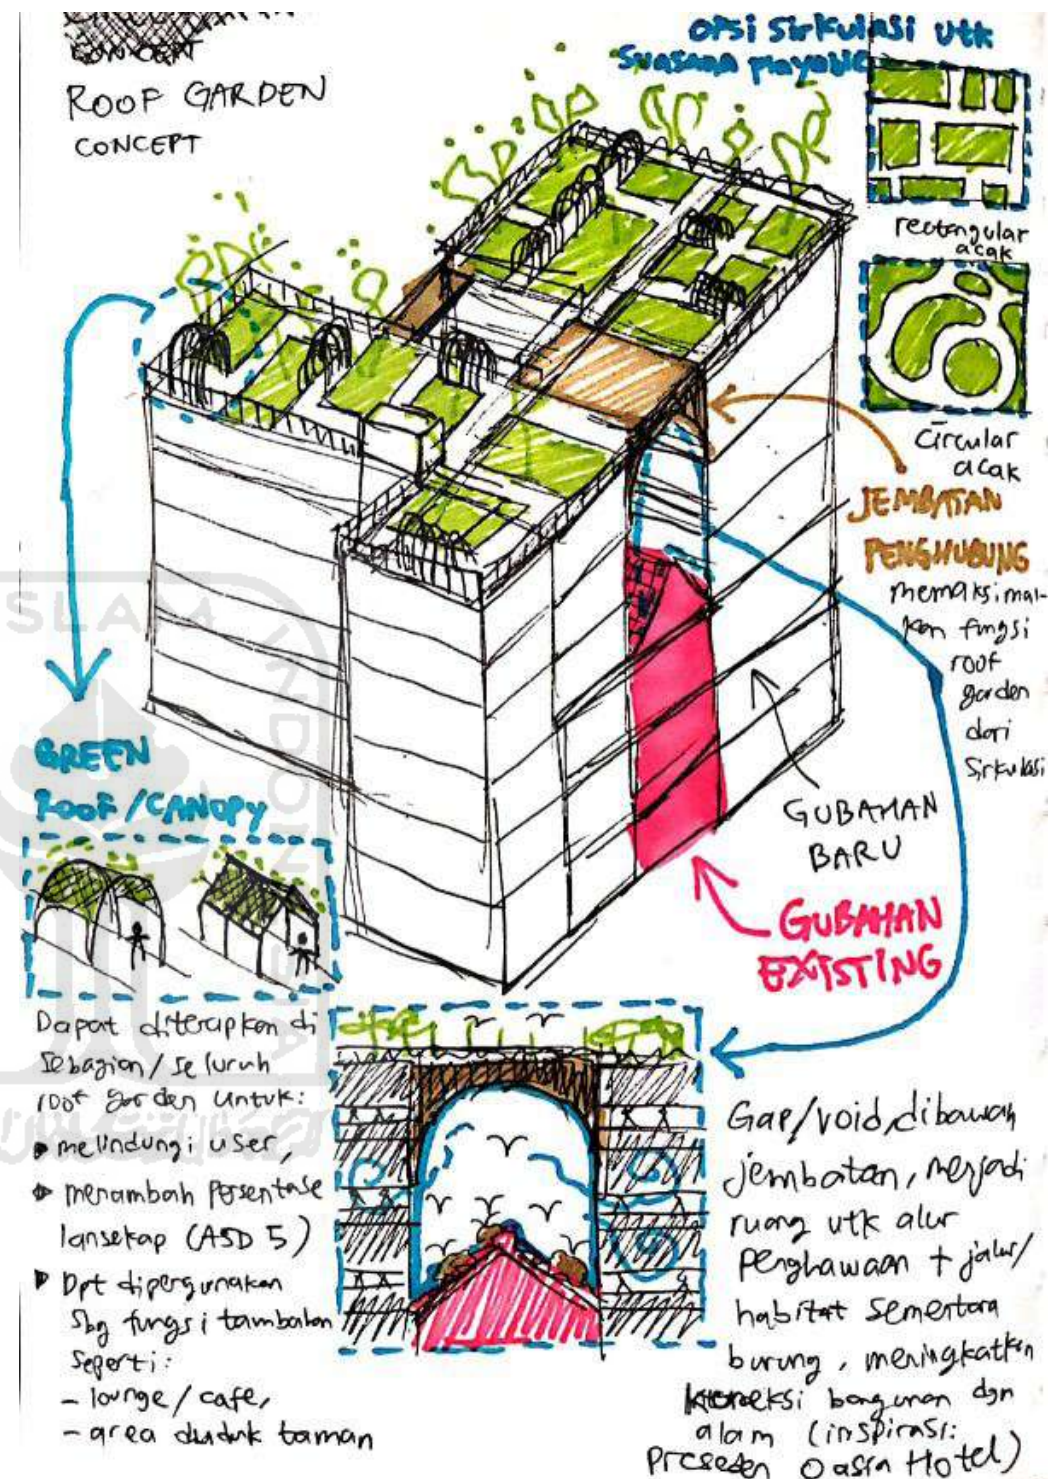 CONCEPT
ROOF GARDEN
CONCEPT
OPSI SIRKULASI UTK
SUASANA PLAYABLE
rectangular
acak
Circular
acak
JEMBATAN
PENGHUBUNG
memaksimal-
kan fungsi
roof
garden
dari
Sirkulasi
GUBAHAN
BARU
GUBAHAN
EXISTING
GREEN
ROOF/CANOPY
Dapat diterapkan di
Sebagian/Seluruh
roof garden untuk:
melindungi user,
menambah persentase
lansekap (ASD 5)
Dpt dipergunakan
Sbg fungsi tambahan
Seperti:
- lounge/cafe,
- area duduk taman
Gap/void, dibawah
jembatan, menjadi
ruang utk alur
penghawaan + jalur/
habitat Sementara
burung, meningkatkan
koneksi bangunan dgn
alam (inspirasi:
Preseden Oasia Hotel)
ISLAM
INDONESIA